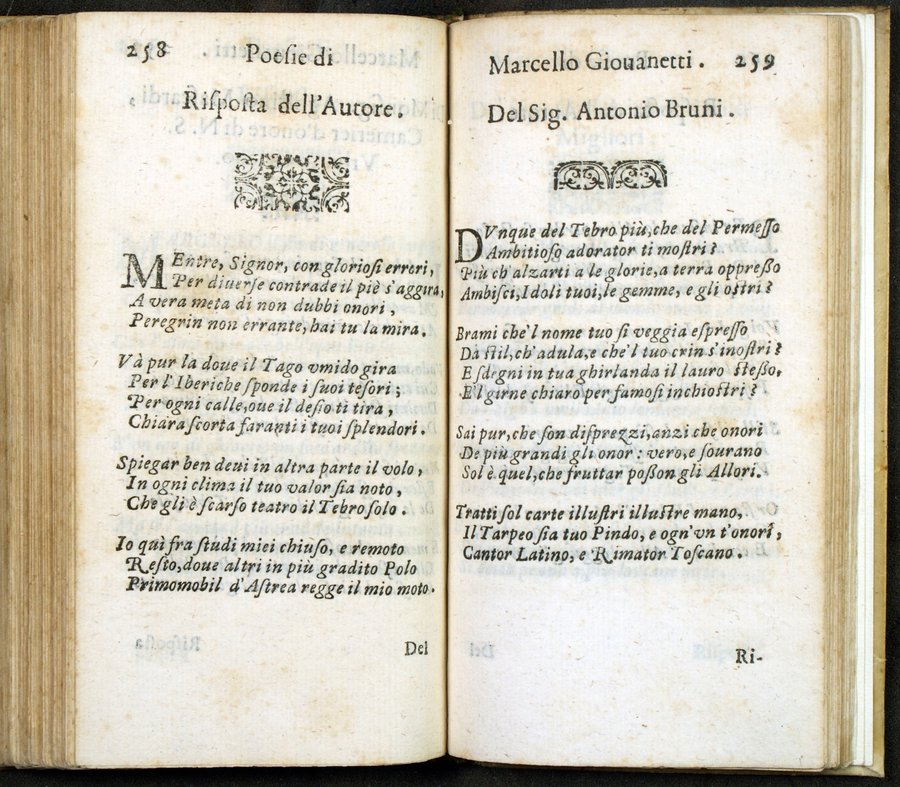 258 Poesie di
Risposta dell'Autore.
MEntre, Signor, con gloriosi erreri,
Per diuerse contrade il piè s'aggira,
A vera meta di non dubbi onori,
Peregrin non errante, hai tu la mira.
Và pur la doue il Tago vmido gira
Per l'Iberiche sponde i suoi tesori;
Per ogni calle, oue il desio ti tira,
Chiara scorta faranti i tuoi splendori.
Spiegar ben deui in altra parte il volo,
In ogni clima il tuo valor sia noto,
Che gli è scarso teatro il Tebro solo.
Io quì fra studi miei chiuso, e remoto
Resto, doue altri in più gradito Polo
Primomobil d'Astrea regge il mio moto.
Del
Marcello Giouanetti. 259
Del Sig. Antonio Bruni.
DVnque del Tebro più, che del Permesso
Ambitioso adorator ti mostri?
Più ch'alzarti a le glorie, a terra oppresso
Ambisci, Idoli tuoi, le gemme, e gli ostri?
Brami che'l nome tuo si veggia espresso
Da stil, ch'adula, e che'l tuo crin s'inostri?
E sdegni in tua ghirlanda il lauro stesso,
E'l girne chiaro per famosi inchiostri?
Sai pur, che son disprezzi, anzi che onori
De più grandi gli onor: vero, e sourano
Sol è quel, che fruttar posson gli Allori.
Tratti sol carte illustri illustre mano,
Il Tarpeo sia tuo Pindo, e ogn'vn t'onori,
Cantor Latino, e Rimator Toscano.
Ri-